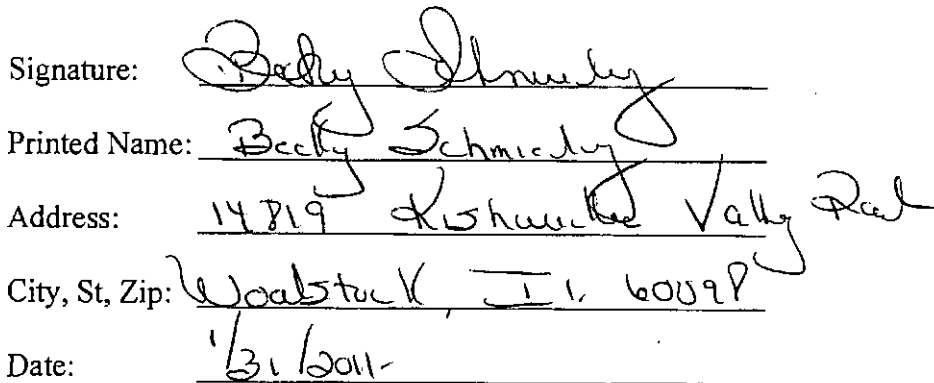 Signature: Becky
Printed Name: Becky
Address: 14819 Kishwaukee Valley Road
City, St, Zip: Woodstock Il. 60098
Date: 1/31/2011